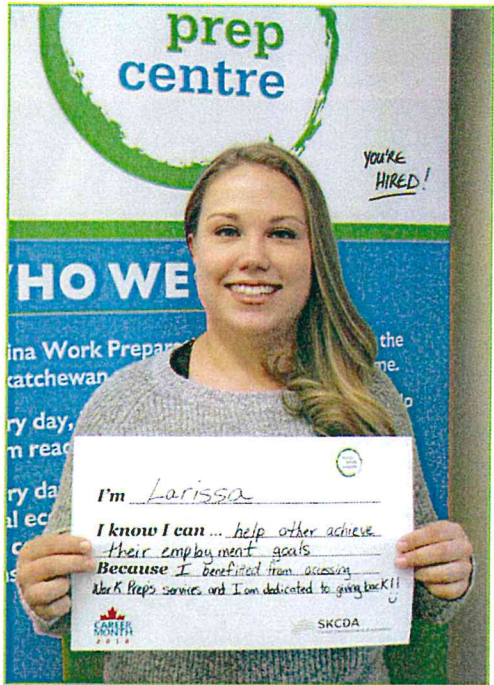 prep
centre
YOU'RE
HIRED!
HO WE
ina Work Prepar
the
katchewan
me.
ry day,
m read
ry da
I'm Larissa
I know I can ... help other achieve
their employment goals
Because I benefitted from accessing
Work Prep's services and I am dedicated to giving back!!
CAREER
MONTH
2018
SKCDA